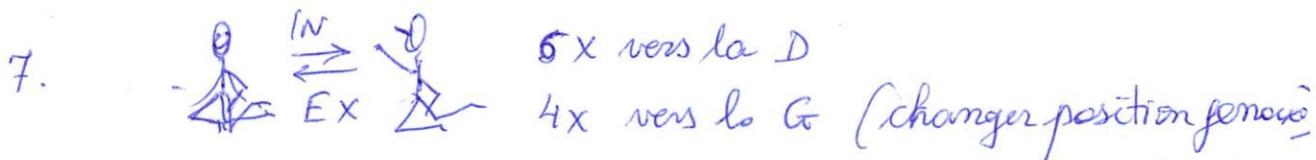 7. IN 5x vers la D
EX 4x vers la G (changer position genoux)